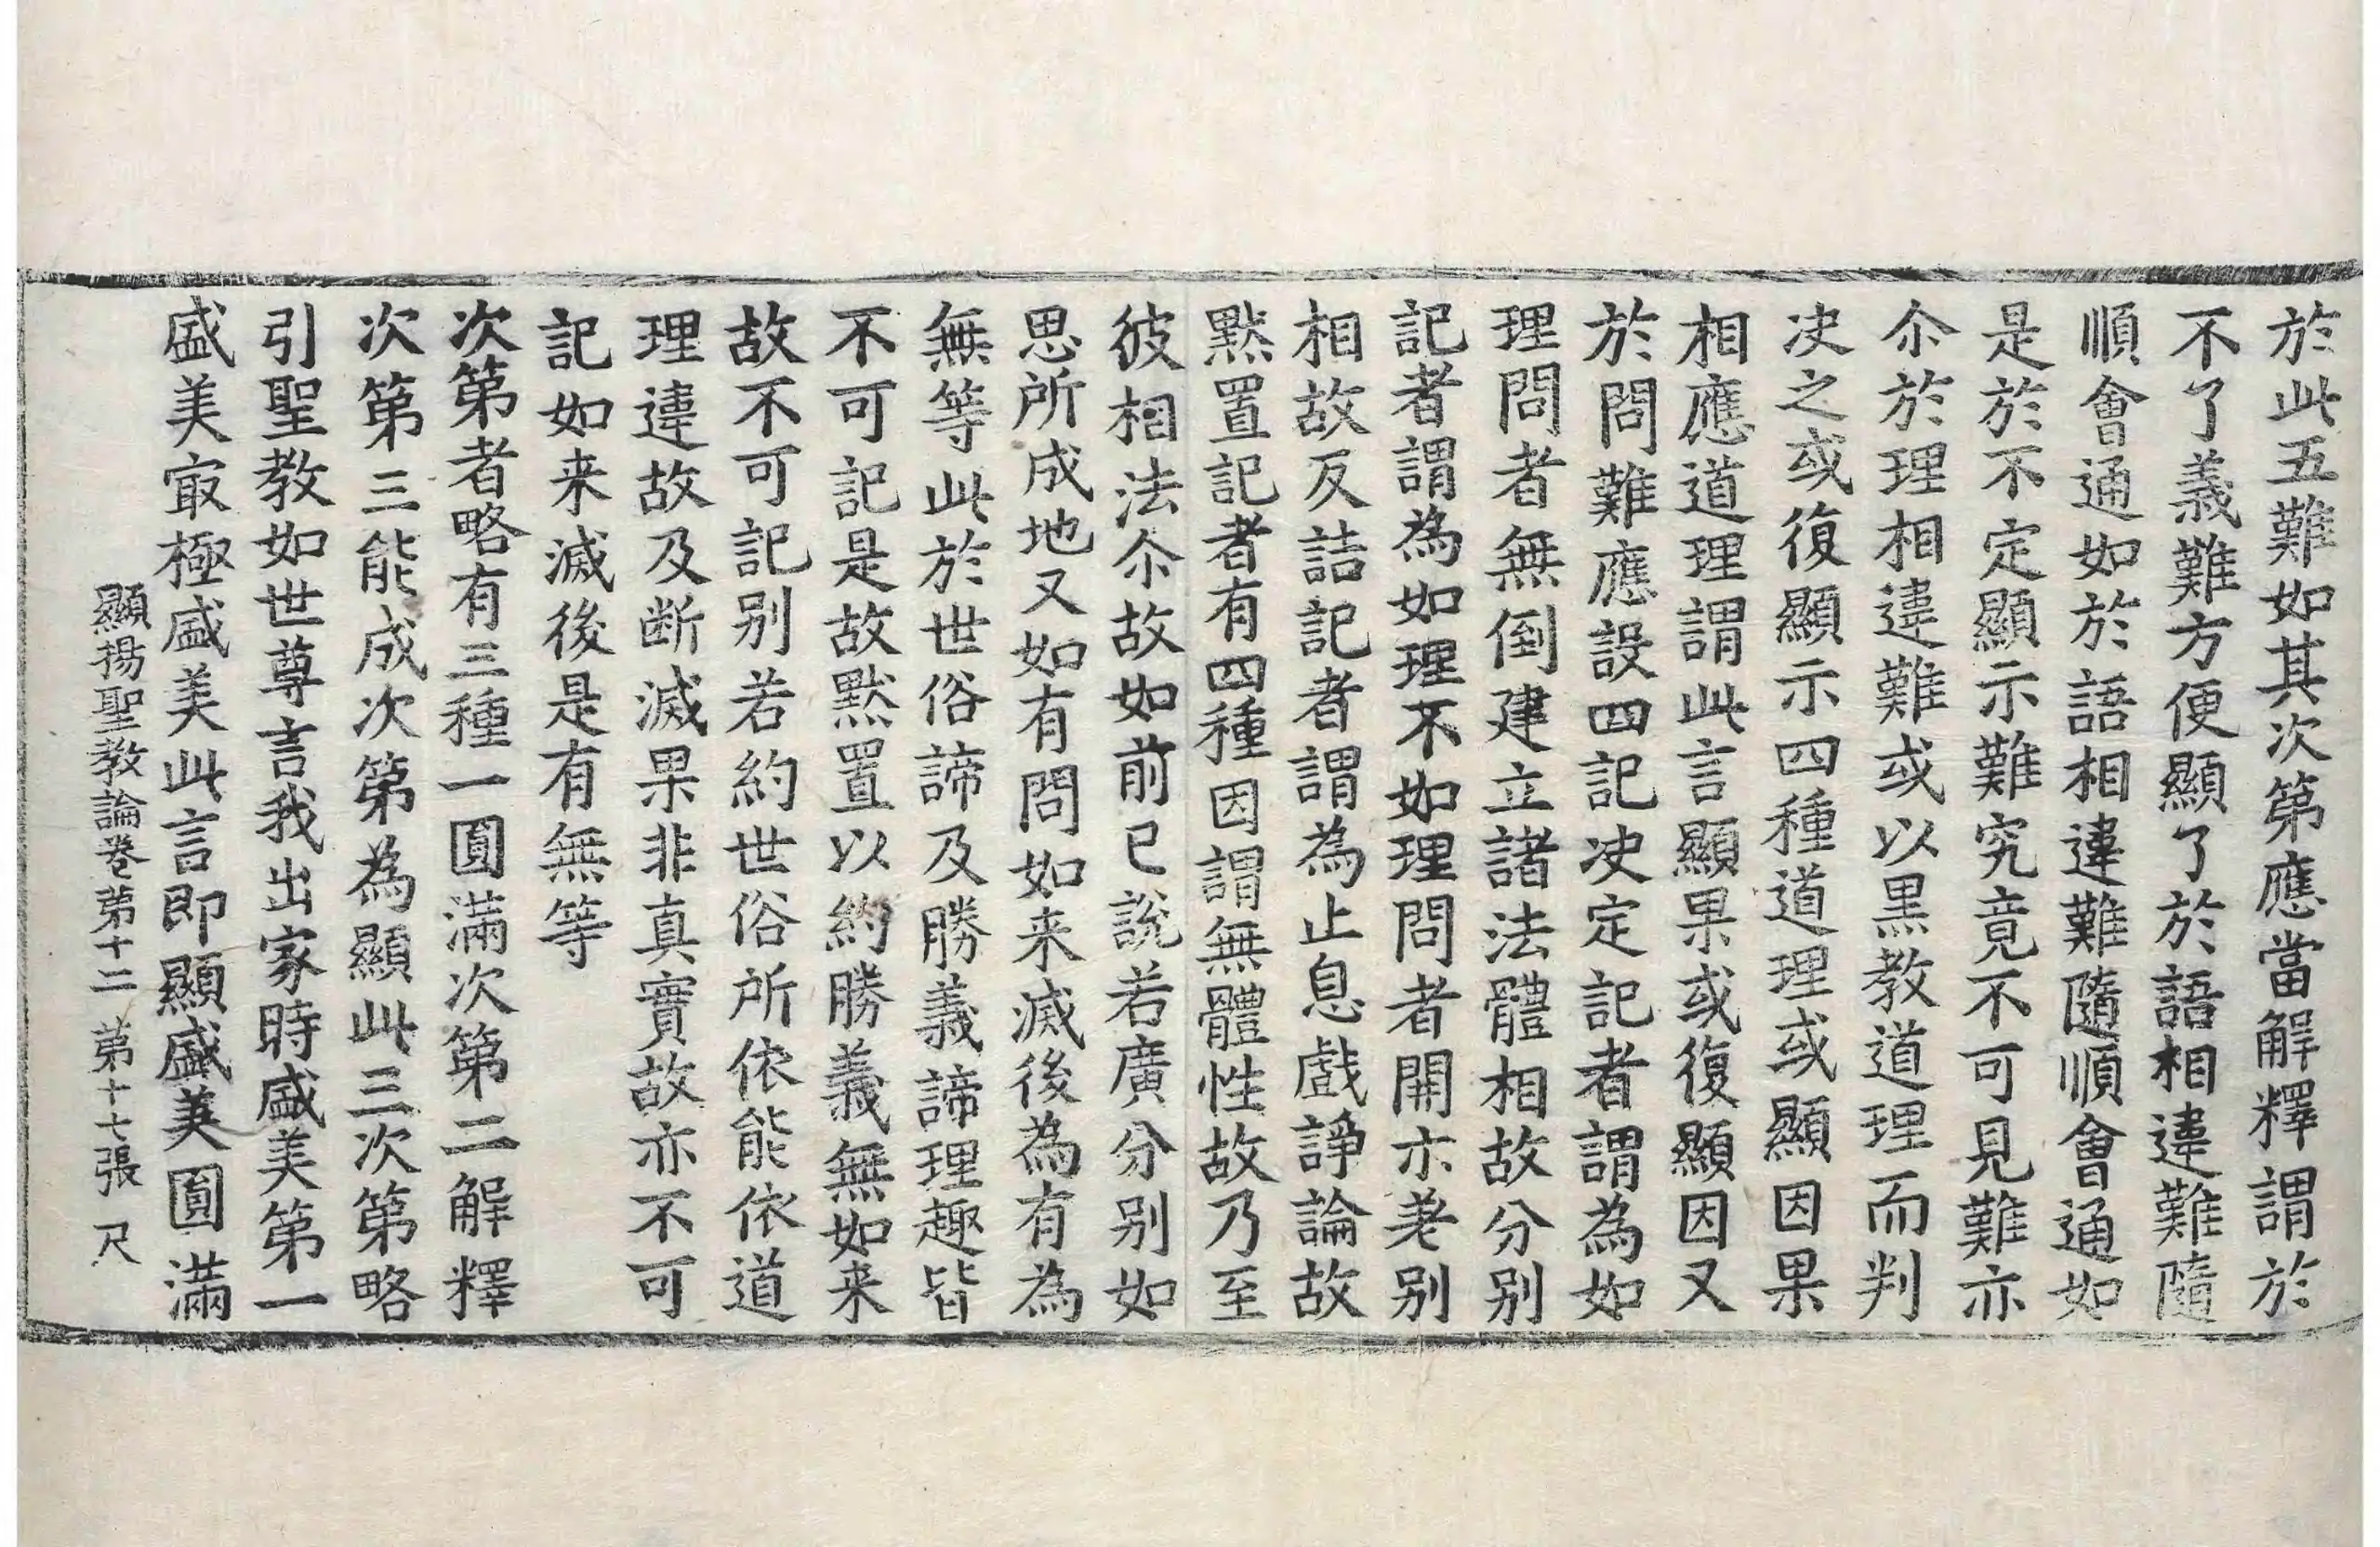 於此五難如其次第應當解釋謂於
不了義難方便顯了於語相違難隨
順會通如於語相違難隨順會通如
是於不定顯示難究竟不可見難亦
尒於理相違難或以黒教道理而判
决之或復顯示四種道理或顯因果
相應道理謂此言顯果或復顯因又
於問難應設四記决定記者謂為如
理問者無倒建立諸法體相故分别
記者謂為如理不如理問者開示差别
相故反詰記者謂為止息戲諍論故
黙置記者有四種因謂無體性故乃至
彼相法尒故如前已說若廣分别如
思所成地又如有問如来滅後為有為
無等此於世俗諦及勝義諦理趣皆
不可記是故黙置以約勝義無如来
故不可記别若約世俗所依能依道
理違故及断滅果非真實故亦不可
記如来滅後是有無等
次第者略有三種一圓滿次第二解釋
次第三能成次第為顯此三次第略
引聖教如世尊言我出家時盛美第一
盛美㝡極盛美此言即顯盛美圓滿
顯揚聖教論卷第十二　第十七張　尺